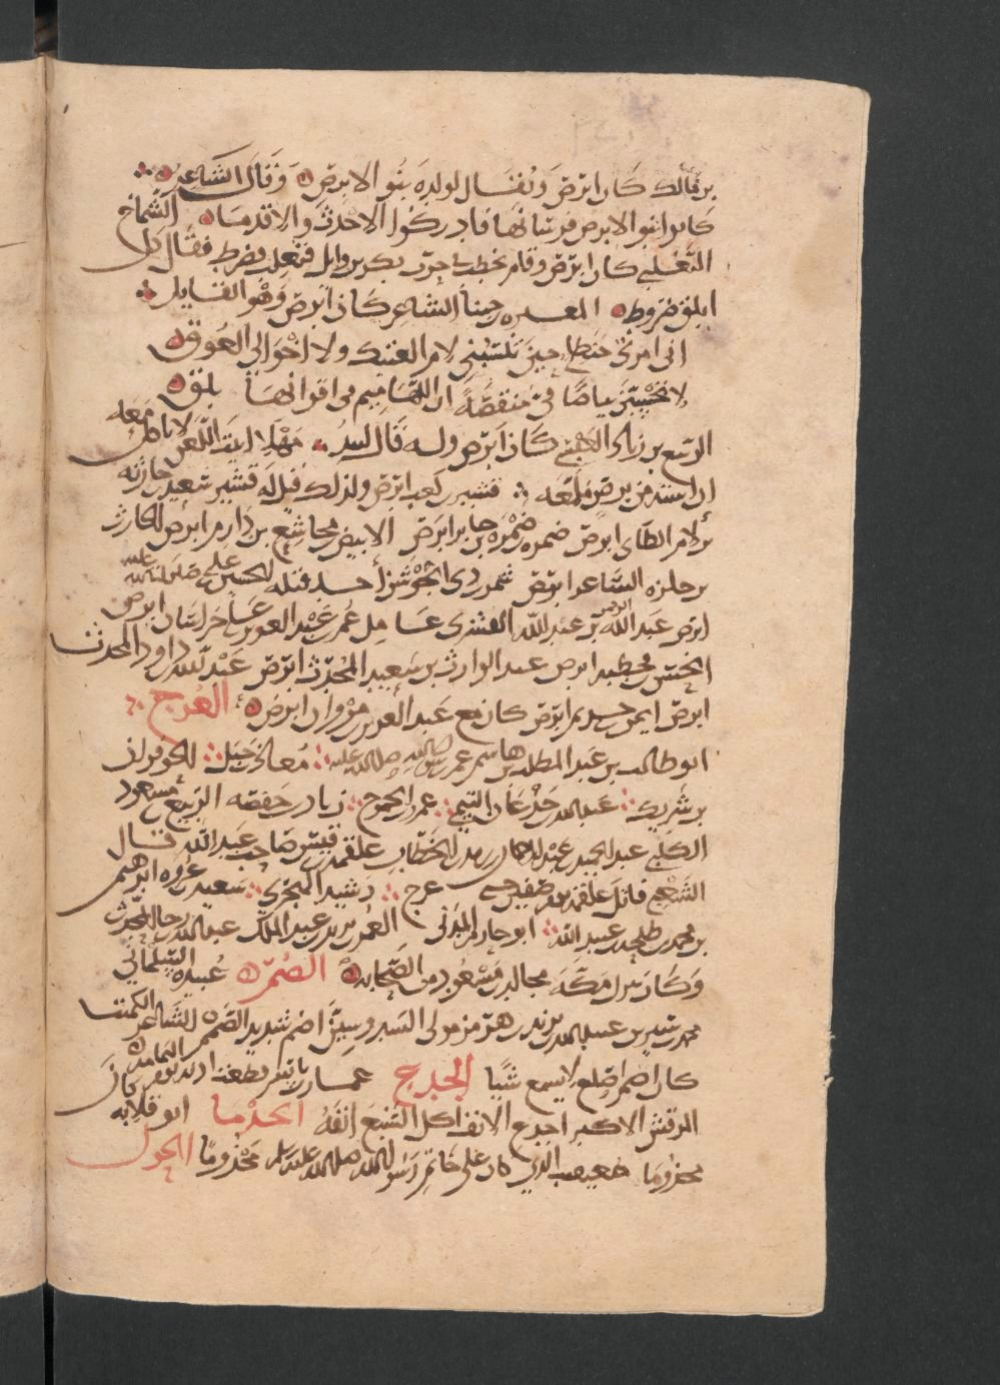 بن مالك كان ابرص ويقال لولده بنو الابرص وقال الشاعر
كانوا بنو الابرص فرسانها فادركوا الاحدث والاقدما الشماخ
التغلبي كان ابرص وقام يخطب في حرب بكر بن وايل فضرط فقال كل
ابلق ضروط المغيره بن حبنا الشاعر كان ابرص وهو القايل
اني امرؤ حنظلي حين تنسبني لام العتيك ولا اخوالي العوق
لا تحسبن بياضا في منقصة ان اللهاميم في اقرانها بلق
الربيع بن زياد العبسي كان ابرص وله قال لبيد مهلا ابيت اللعن لا تاكل معه
ان استه من برص ملمعه قشير بن كعب ابرص ولذلك قيل له قشير سعيد بن حارثه
بن لام الطائ ابرص ضمره بن ضمره بن جابر ابرص الابيض بن مجاشع بن دارم ابرص الحارث
بن حلزه الشاعر ابرص شمر بن ذي الجوشن احد قتله الحسين بن علي صلى الله عليه
ابرص عبد الرحمن بن عبد الله القشيري عامل عمر بن عبد العزيز على خراسان ابرص
ابرص عبد الوارث بن سعيد المحدث ابرص عبد الله بن داود المحدث
ابرص ايمن بن خريم ابرص كان مع عبد العزيز بن مروان ابرص العرج
ابو طالب بن عبد المطلب بن هاشم عم رسول الله صلى الله عليه معاذ بن جبل الحوفزان
بن شريك عبد الله بن جدعان التيمي عمرو بن الجموح زياد بن حفصه الربيع بن مسعود
الكلبي عبد الحميد بن عبد الرحمن بن زيد بن الخطاب علقمة بن قيس صاحب عبد الله قال
الشعبي قاتل علقمة يوم صفين حتى عرج رشيد الهجري سعيد بن عروه ابرهيم
بن محمد بن طلحة بن عبيد الله ابو حازم المدني العمر بن يزيد بن عبد الملك عبد الله بن رجا المحدث
وكان نزل مكة مجالد بن مسعود من الصحابه الصم عبيده السلماني
محمد بن سيرين عبد الله بن يزيد بن هرمز مولى اصم شديد الصمم الشاعر الكميت
كان اصم اصلع لا يسمع شيا الجدع عمار بن ياسر قطعت اذنه يوم اليمامه كان
المرقش الاكبر اجدع الانف اكل السبع انفه الجذما ابو قلابه
مجذوما معيقيب الذي كان على خاتم رسول الله صلى الله عليه مجذوما الحول